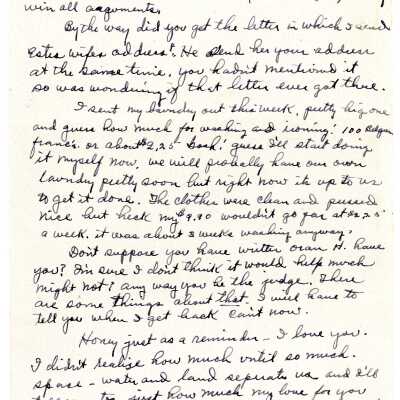 win all arguments.
By the way did you get the letter in which I send
Estes wifes address? He send her your address
at the same time, you hadn't mentioned it
so was wondering if that letter ever got there.
I sent my laundry out this week, pretty big one
and guess how much for washing and ironing! 100 Belgian
francs. or about $2.25 Gosh! guess I'll start doing
it myself now, we will probably have our own
laundry pretty soon but right now its up to us
to get it done. The clothes were clean and pressed
nice but heck my $9.90 wouldn't go far at $2.25
a week. it was about 3 weeks washing anyway.
Don't suppose you have written H. have
you? I'm sure I don't think it would help much
might not! any way you be the judge. There
are some things about that, I will have to
tell you when I get back can't now.
Honey just as a reminder - I love you.
I didn't realize how much until so much
space - water and land seperate us and I'll
just how much my love for you